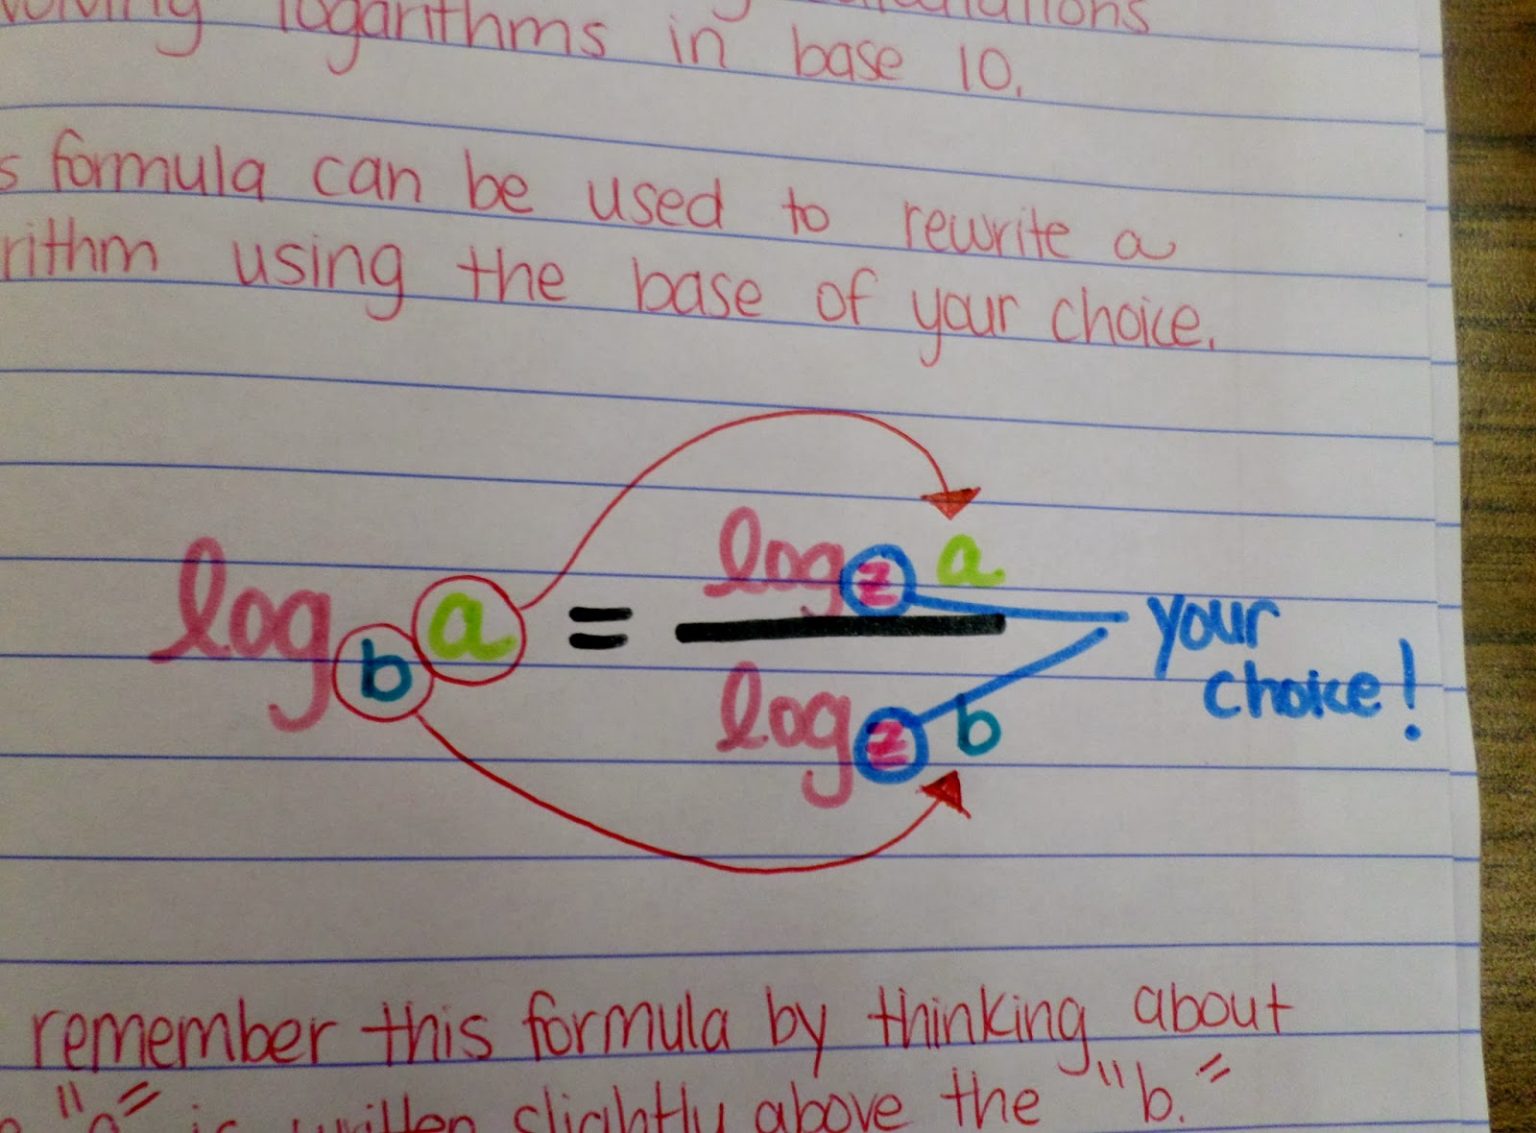 logarithms in base 10.
formula can be used to rewrite a
rithm using the base of your choice.
log_b a = log_z a / log_z b your choice!
remember this formula by thinking about
"a" is written slightly above the "b."